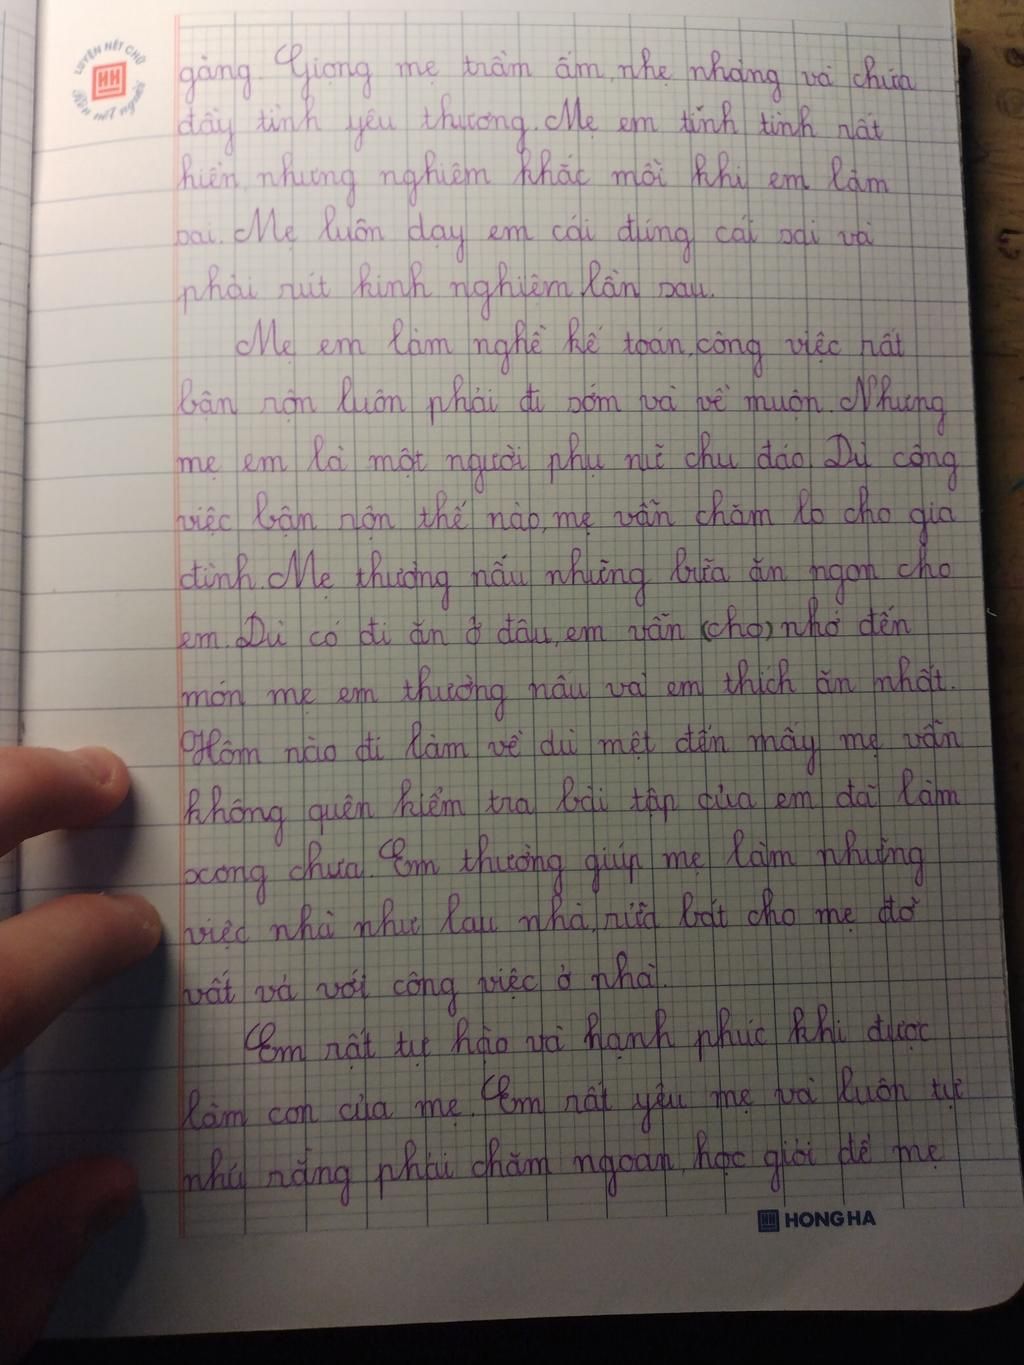 LUYỆN NÉT CHỮ
HH
Rèn nết người
gàng. Giọng mẹ trầm ấm, nhẹ nhàng và chứa
đầy tình yêu thương. Mẹ em tính tình rất
hiền nhưng nghiêm khắc mỗi khi em làm
sai. Mẹ luôn dạy em cái đúng cái sai và
phải rút kinh nghiệm lần sau.
Mẹ em làm nghề kế toán, công việc rất
bận rộn luôn phải đi sớm và về muộn. Nhưng
mẹ em là một người phụ nữ chu đáo. Dù công
việc bận rộn thế nào, mẹ vẫn chăm lo cho gia
đình. Mẹ thường nấu những bữa ăn ngon cho
em. Dù có đi ăn ở đâu, em vẫn (cho) nhớ đến
món mẹ em thường nấu và em thích ăn nhất.
Hôm nào đi làm về dù mệt đến mấy mẹ vẫn
không quên kiểm tra bài tập của em đã làm
xong chưa. Em thường giúp mẹ làm những
việc nhà như lau nhà, rửa bát cho mẹ đỡ
vất vả với công việc ở nhà.
Em rất tự hào và hạnh phúc khi được
làm con của mẹ. Em rất yêu mẹ và luôn tự
nhủ rằng phải chăm ngoan, học giỏi để mẹ
HH HONG HA